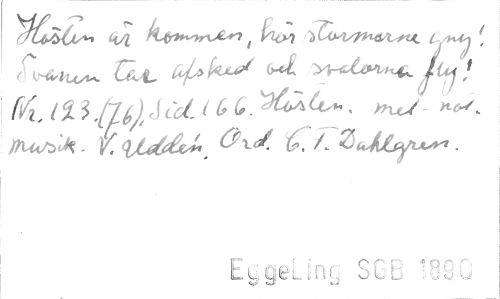 Hösten är kommen, hör stormarne gny!
Svanen tar afsked och svalorna fly!
Nr. 123. (76). Sid. 166. Hösten. med not.
musik. V. Uddén. Ord. C. F. Dahlgren.
EggeLing SGB 1890